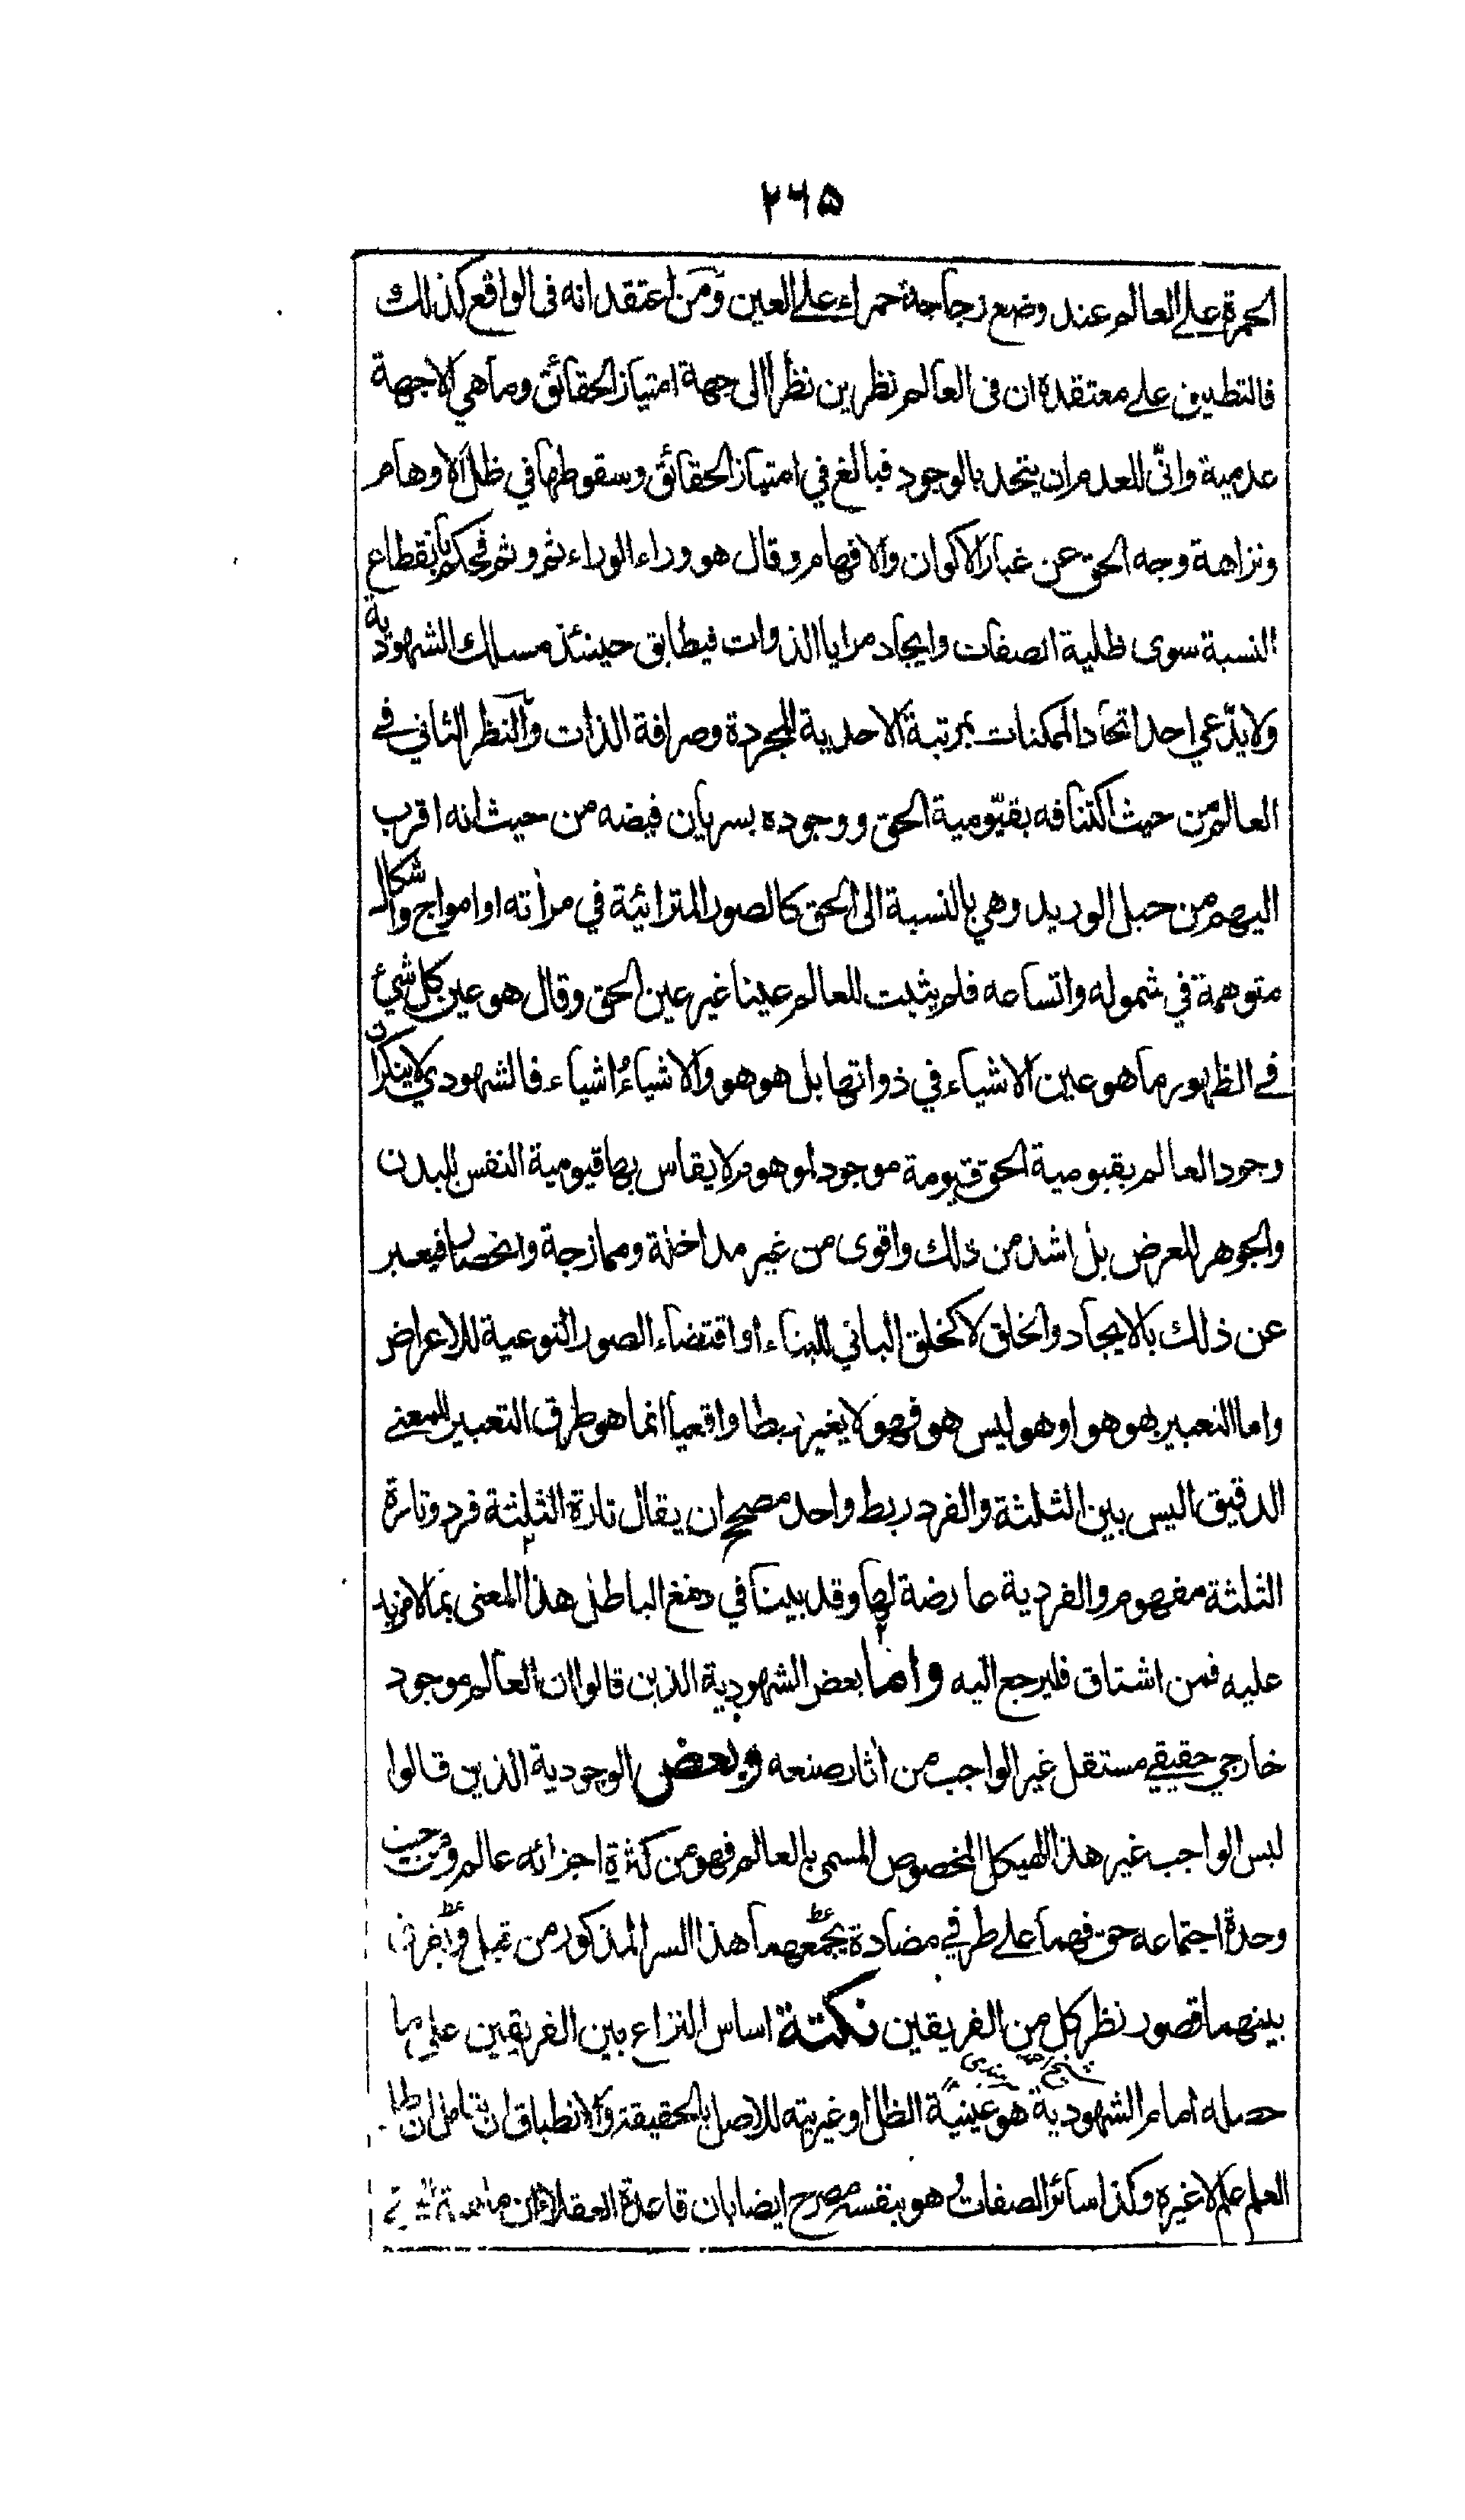 ٢٦٥
الحمرة على العالم عند وضع زجاجة حمراء على العين ومن اعتقد انه فى الواقع كذلك
فالتطبيق على معتقده ان فى العالم نظرين نظرا الى جهة امتياز الحقائق وما هي الا جهة
عدمية وانّى للعدم ان يتحد بالوجود فبالغ في امتياز الحقائق وسقوطها في ظل الاوهام
ونزاهة وجه الحق عن غبار الاكوان والافهام وقال هو وراء الوراء ثم وثم فحكم بانقطاع
النسبة سوى ظلية الصفات وايجاد مرايا الذوات فيطابق حينئذ مسالك الشهودية
ولا يدّعي احد اتحاد الممكنات بمرتبة الاحدية المجردة وصرافة الذات والنظر الثاني في
العالم من حيث اكتنافه بقيّومية الحق ووجوده بسريان فيضه من حيث انه اقرب
اليهم من حبل الوريد وهي بالنسبة الى الحق كالصور المترائية في مرأته او امواج واشكال
متوهمة في شموله واتساعه فلم يثبت للعالم عينا غير عين الحق وقال هو عين كل شيئ
في الظهور ما هو عين الاشياء في ذواتها بل هو هو والاشياءُ اشياء فالشهودي لا ينكر ان
وجود العالم بقيومية الحق قيومة موجود لموهوم لا يقاس بها قيومية النفس للبدن
والجوهر للعرض بل اشد من ذلك واقوى من غير مداخلة وممازجة وانحصار فيعبر
عن ذلك بالايجاد والخلق لا كخلق الباني للبناء او اقتضاء الصور النوعية للاعراض
واما التعبير بهو هو او هو ليس هو فهو لا يغير ربطا واقعيا انما هو طرق التعبير للمعنى
الدقيق اليس بين الثلثة والفرد ربط واحد مصحح ان يقال تارة الثلثة فرد وتارة
الثلثة مفهوم والفردية عارضة لها وقد بينا في دمغ الباطل هذا المعنى بما لا مزيد
عليه فمن اشتاق فليرجع اليه واما بعض الشهودية الذين قالوا ان العالم موجود
خارجي حقيقي مستقل غير الواجب من اثار صنعه وبعض الوجودية الذين قالوا
ليس الواجب غير هذا الهيكل المخصوص المسمى بالعالم فهو من كثرة اجزائه عالم ومن حيث
وحدة اجتماعه حق فهما على طرفي مضادة يجمعهما هذا السر المذكور من قبل
بينهما قصور نظر كل من الفريقين نكتة اساس النزاع بين الفريقين على ما
حصله امام الشهودية هو عينية الظل او غيريته للاصل بالحقيقة والانطباق ان
العلم علم لا غيره وكذا سائر الصفات و هو بنفسه مصرح ايضا بان قاعدة العقلاء ان